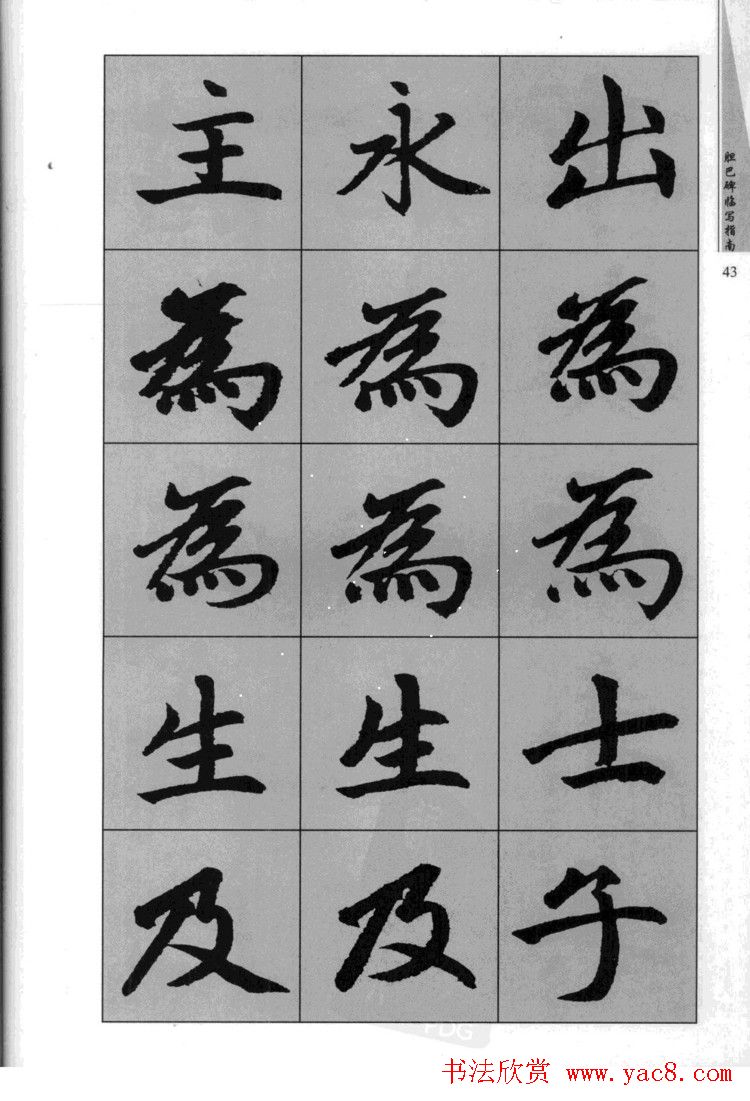 出永主
為為為
為為為
士生生
子及及
胆巴碑临写指南
43
PDG
书法欣赏 www.yac8.com